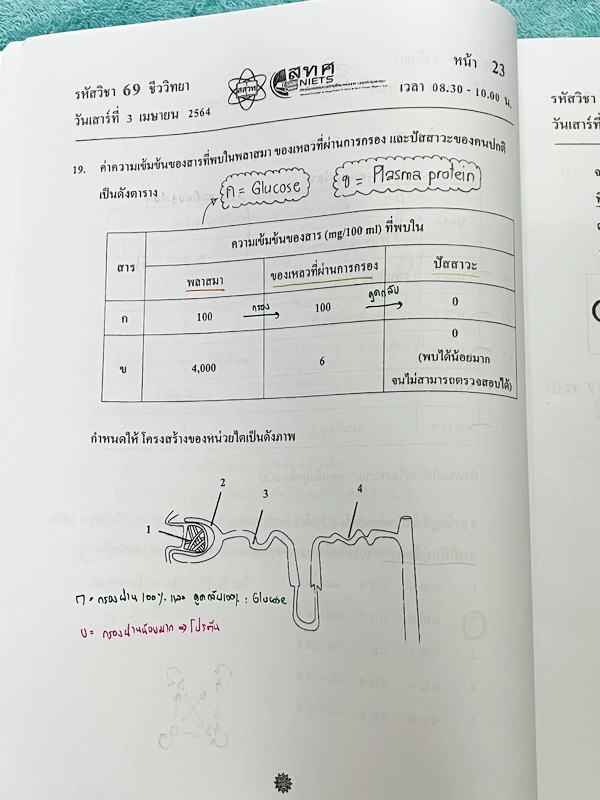 รหัสวิชา 69 ชีววิทยา
วันเสาร์ที่ 3 เมษายน 2564
สสวท
สทศ
NIETS
หน้า 23
เวลา 08.30 - 10.00 น.
19. ค่าความเข้มข้นของสารที่พบในพลาสมา ของเหลวที่ผ่านการกรอง และปัสสาวะของคนปกติ
เป็นดังตาราง
ก = Glucose
ข = Plasma protein
สาร
ความเข้มข้นของสาร (mg/100 ml) ที่พบใน
พลาสมา ของเหลวที่ผ่านการกรอง ปัสสาวะ
ก 100 กรอง 100 ดูดกลับ 0
ข 4,000 6 0
(พบได้น้อยมาก
จนไม่สามารถตรวจสอบได้)
กำหนดให้ โครงสร้างของหน่วยไตเป็นดังภาพ
1 2 3 4
ก = กรองผ่าน 100% และ ดูดกลับ 100% : Glucose
ข = กรองผ่านน้อยมาก ⇒ โปรตีน
รหัสวิชา
วันเสาร์ที่